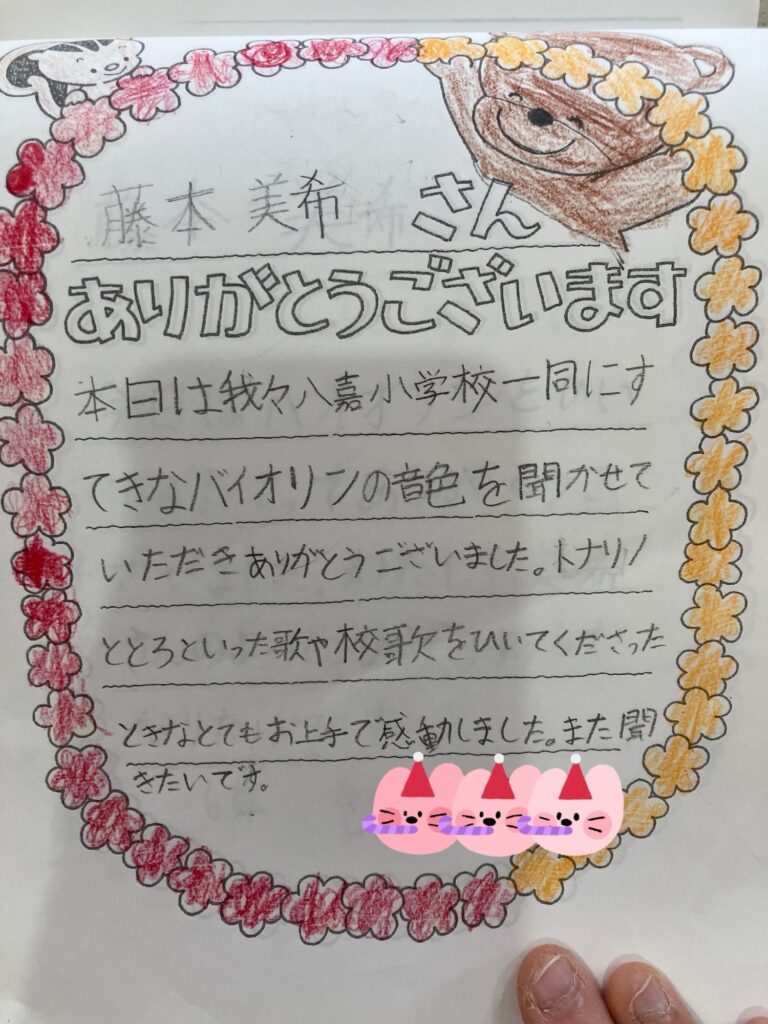 藤本 美希 さん
ありがとうございます
本日は我々八嘉小学校一同にす
てきなバイオリンの音色を聞かせて
いただきありがとうございました。トナリノ
ととろといった歌や校歌をひいてくださった
ときなとてもお上手で感動しました。また聞
きたいです。